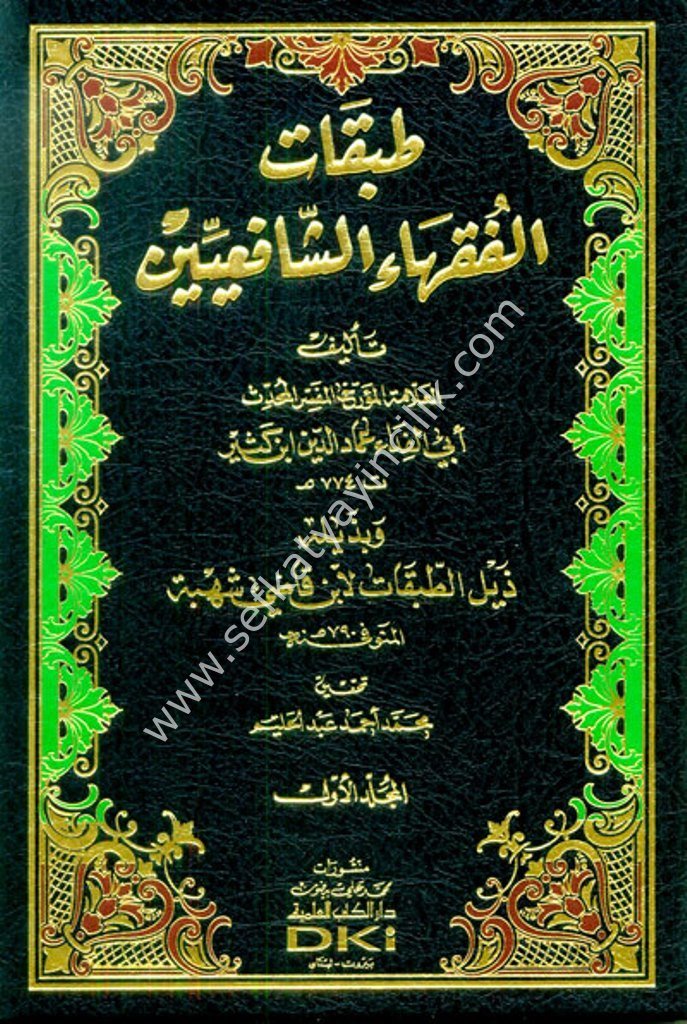 طبقات
الفُقهاء الشّافعيّين
تأليف
العلامة المؤرخ المفسر المحدث
أبي الفداء عماد الدين ابن كثير
ت ٧٧٤ هـ
وبذيله
ذيل الطبقات لابن قاضي شهبة
المتوفى ٧٩٠ هـ
تحقيق
محمد أحمد عبد الحليم
المجلد الأول
منشورات
محمد علي بيضون
دار الكتب العلمية
DKi
بيروت - لبنان
www.sefkatyayincilik.com